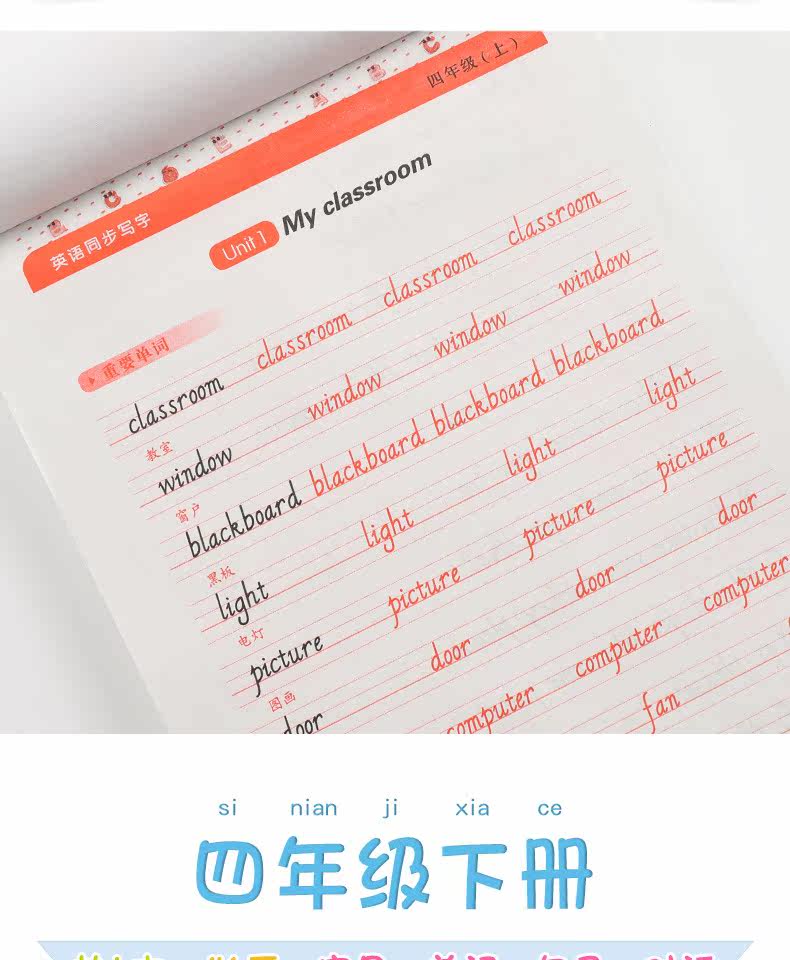 四年级（上）
英语同步写字
Unit 1 My classroom
重要单词
classroom classroom classroom classroom
教室
window window window window
窗户
blackboard blackboard blackboard blackboard
黑板
light light light light
电灯
picture picture picture picture
图画
door door door door
computer computer computer
fan
si nian ji xia ce
四年级下册